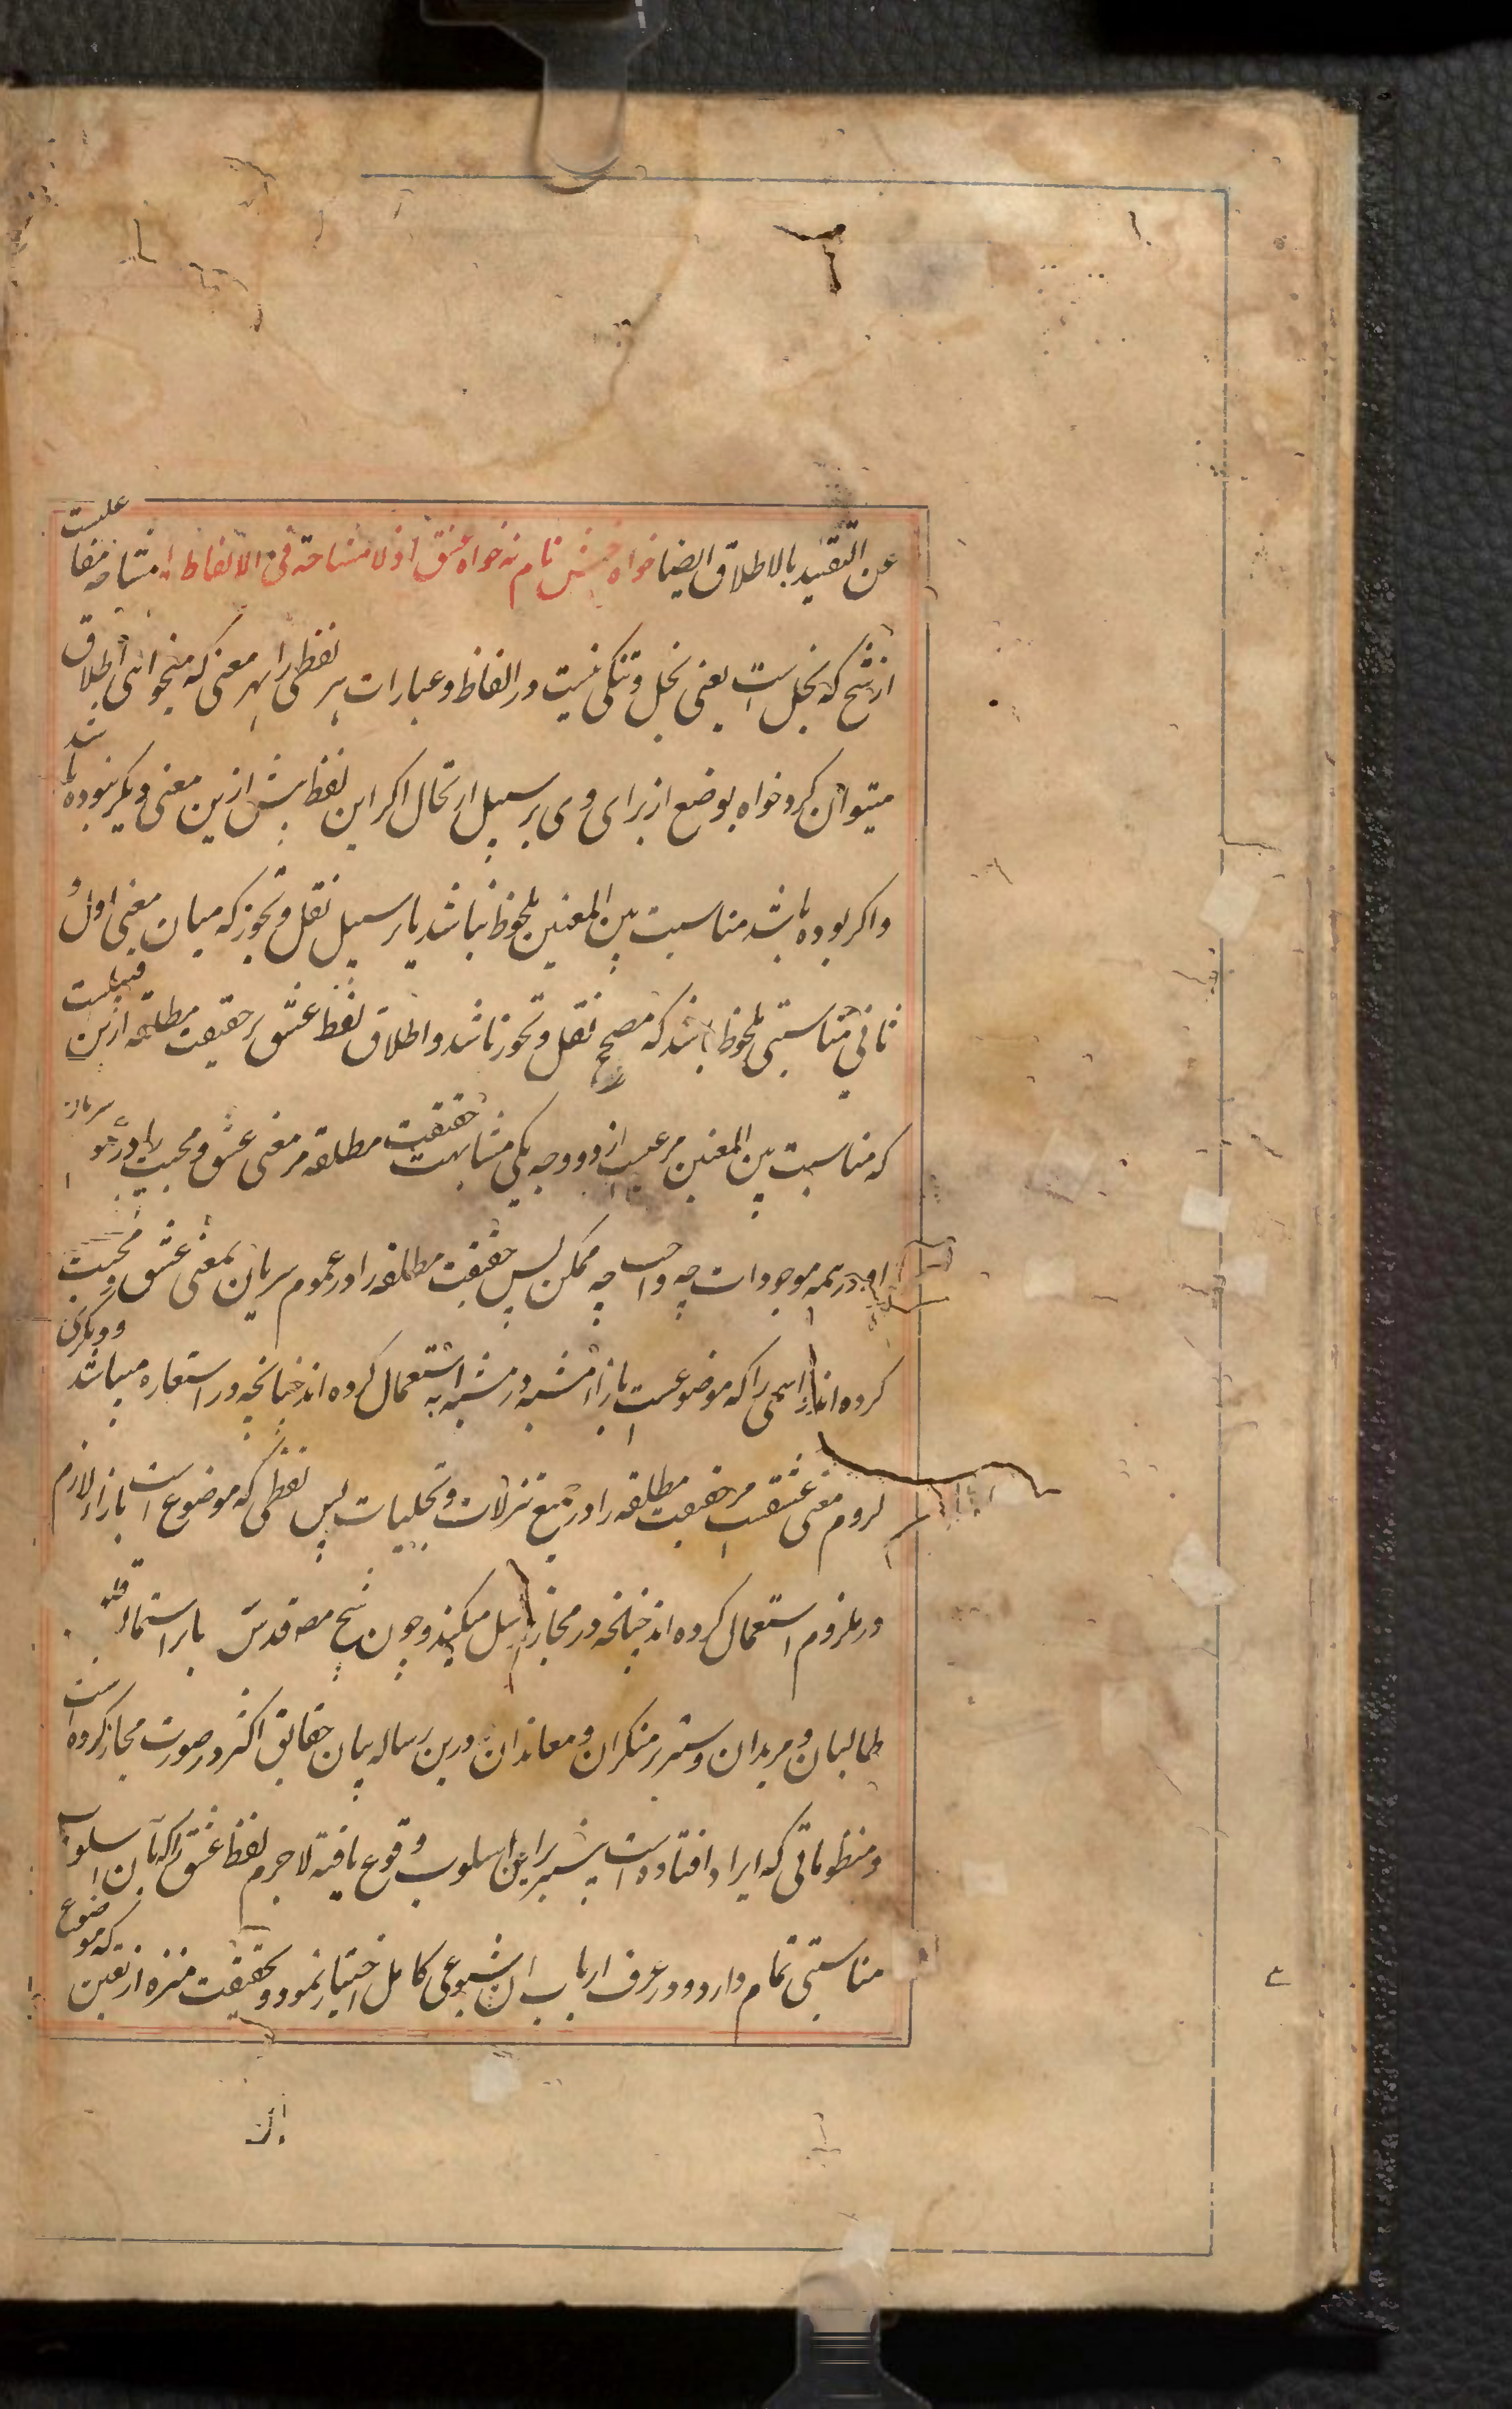 عن التقید بالاطلاق ایضا خواه حسنش نام نه خواه عشق اذ لا مشاحة فی الالفاظ مشاحه مفاعلیست
از شح که بخل است یعنی بخل و تنکی نیست در الفاظ و عبارات هر لفظی را بهر معنی که میخواهی اطلاق
میتوان کرد خواه بوضع از برای وی بر سبیل ارتجال اکر این لفظ پیش ازین معنی دیکر نبوده باشد
واکر بوده باشد مناسبت بین المعنیین ملحوظ نباشد یا بر سبیل نقل و تجوز که میان معنی اول و
ثانی مناسبتی ملحوظ باشد که مصحح نقل و تجوز باشد و اطلاق لفظ عشق بر حقیقت مطلقه ازین قبیلست
که مناسبت بین المعنیین مرعیست از دو وجه یکی مشابهت حقیقت مطلقه مر معنی عشق و محبت را در عموم سریان
او در همه موجودات چه واجب چه ممکن پس حقیقت مطلقه را در عموم سریان بمعنی عشق و محبت
کرده اند و اسمی را که موضوعست بازاء مشبه به در مشبه استعمال کرده اند چنانچه در استعاره میباشد و دیکری
لزوم معنی عشقست مر حقیقت مطلقه را در جمیع تنزلات و تجلیات پس لفظی که موضوع است بازاء لازم
در ملزوم استعمال کرده اند چنانچه در مجاز مرسل میکنند و چون شیخ مصنف قدس سره بنا بر استمالة
طالبان و مریدان و ستر بر منکران و معاندان درین رساله بیان حقایق اکثر در صورت مجاز کرده است
و منظوماتی که ایراد افتاده است بیشتر بر این اسلوب وقوع یافته لاجرم لفظ عشق را که بآن اسلوب
مناسبتی تمام دارد و در عرف ارباب آن شیوعی کامل اختیار نمود و حقیقت منزه از تعین که موضوع